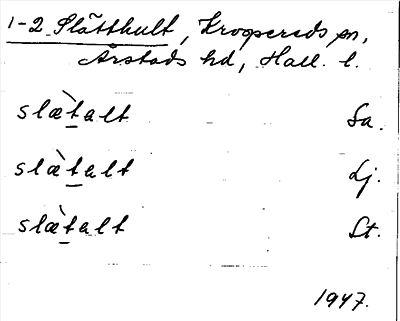 1-2 Slätthult, Krogsereds sn,
Årstads hd, Hall. l.
slæ̀t̲alt Sa.
slæ̀t̲alt Lj.
slæ̀t̲alt St.
1947.